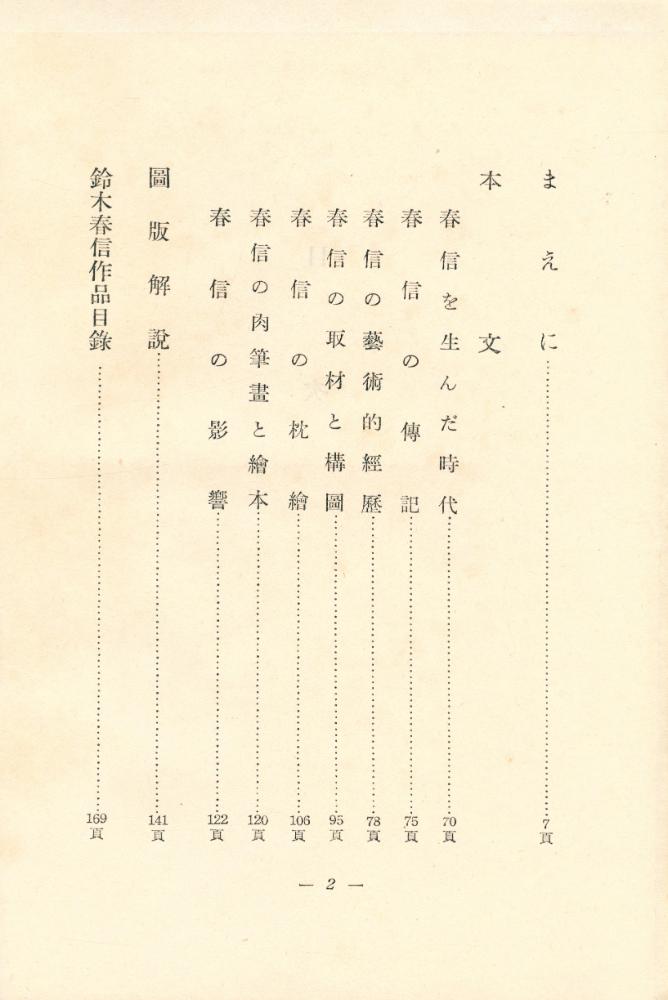 まえに……………………7頁
本文
春信を生んだ時代……………………70頁
春信の傳記……………………75頁
春信の藝術的經歷……………………78頁
春信の取材と構圖……………………95頁
春信の枕繪……………………106頁
春信の肉筆畫と繪本……………………120頁
春信の影響……………………122頁
圖版解說……………………141頁
鈴木春信作品目錄……………………169頁
— 2 —